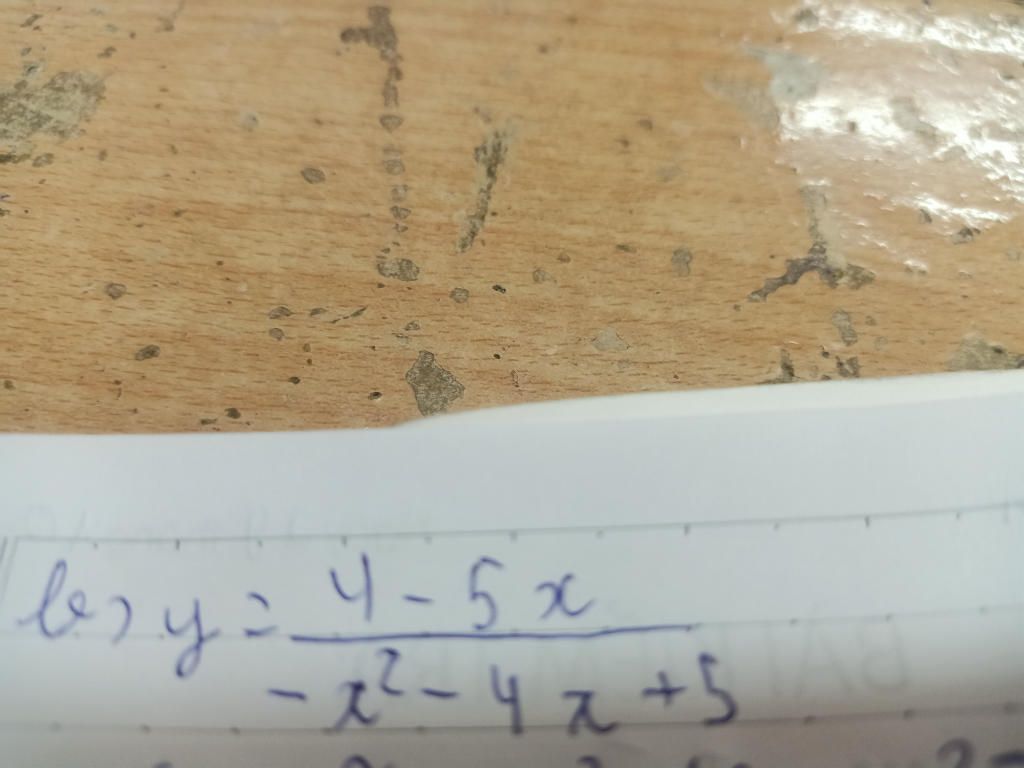 b) y = 4 - 5x
-x² - 4x + 5